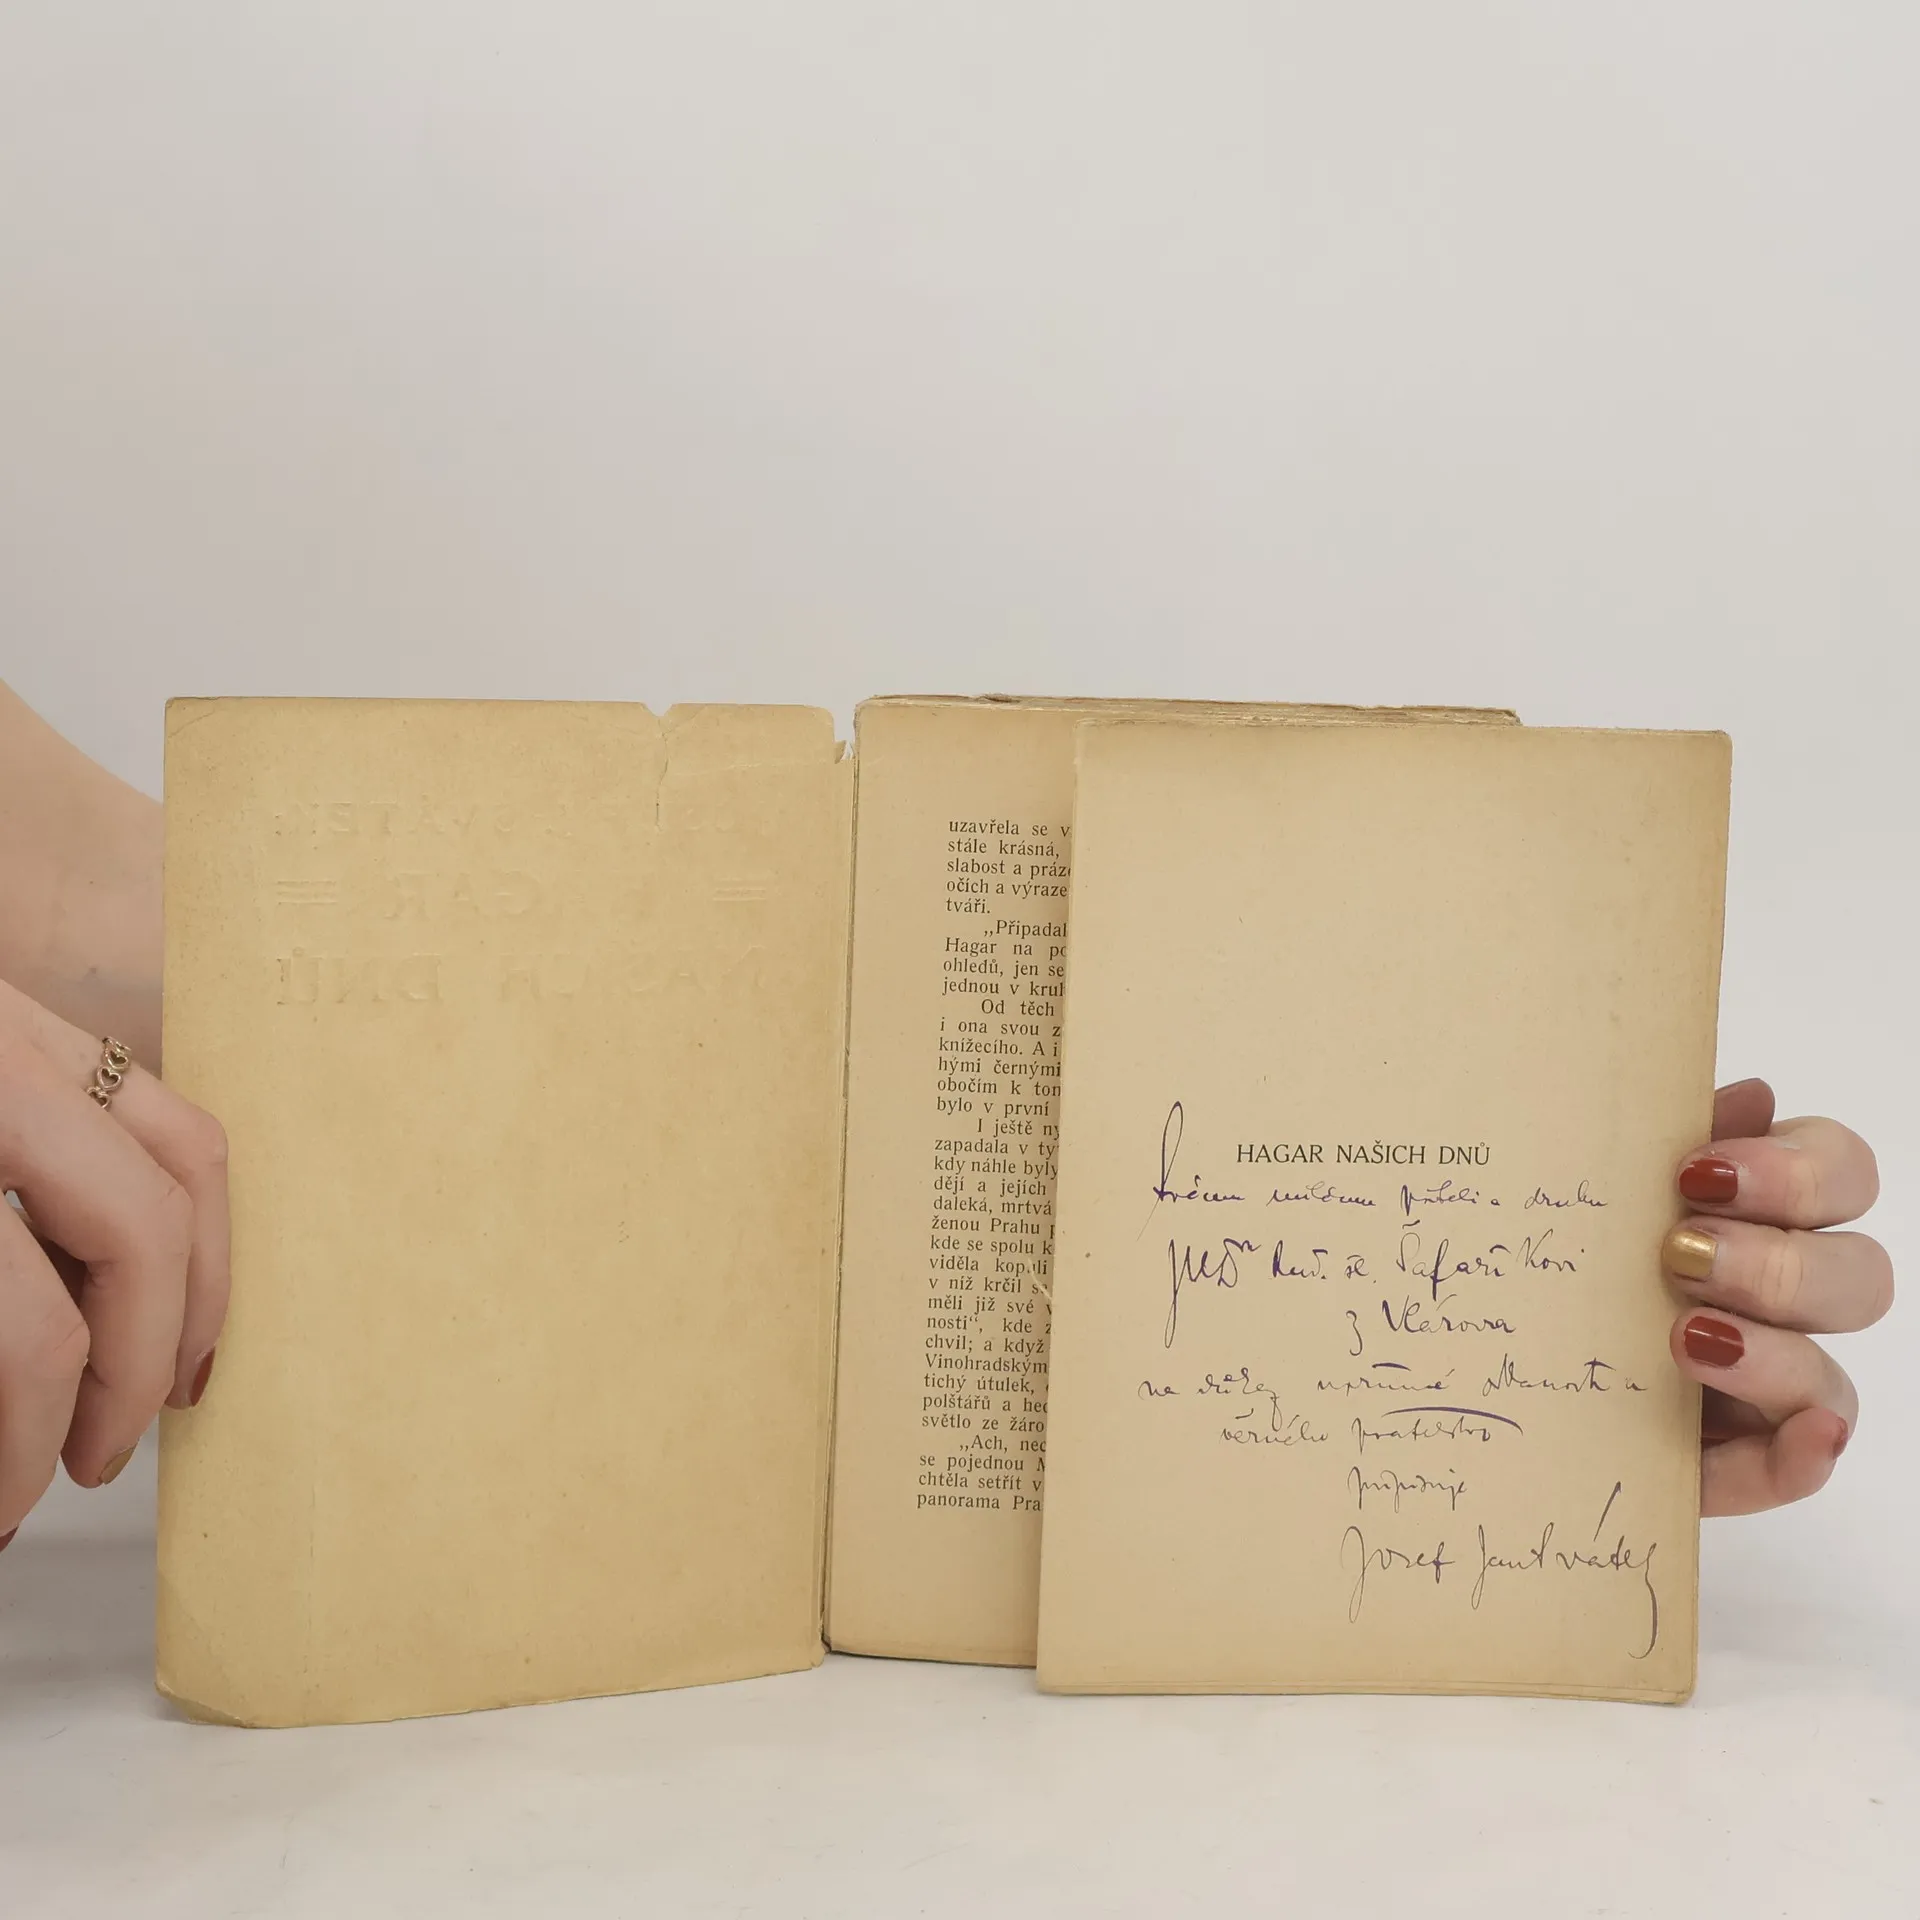 uzavřela se v
stále krásná,
slabost a prázd
očích a výraze
tváři.
„Připadal
Hagar na po
ohledů, jen se
jednou v kruh
Od těch
i ona svou z
knížecího. A i
hými černými
obočím k tom
bylo v první
I ještě ny
zapadala v ty
kdy náhle byly
dějí a jejích
daleká, mrtvá
ženou Prahu p
kde se spolu k
viděla kopali
v níž krčil se
měli již své v
nosti“, kde z
chvil; a když
Vinohradským
tichý útulek,
polštářů a hed
světlo ze žáro
„Ach, nec
se pojednou M
chtěla setřít v
panorama Pra
HAGAR NAŠICH DNŮ
Svému milému příteli a druhu
MUDru Rud. Šafaříkovi
z
na důkaz upřímné oddanosti a
věrného přátelství
připisuje
Josef Jan Svátek